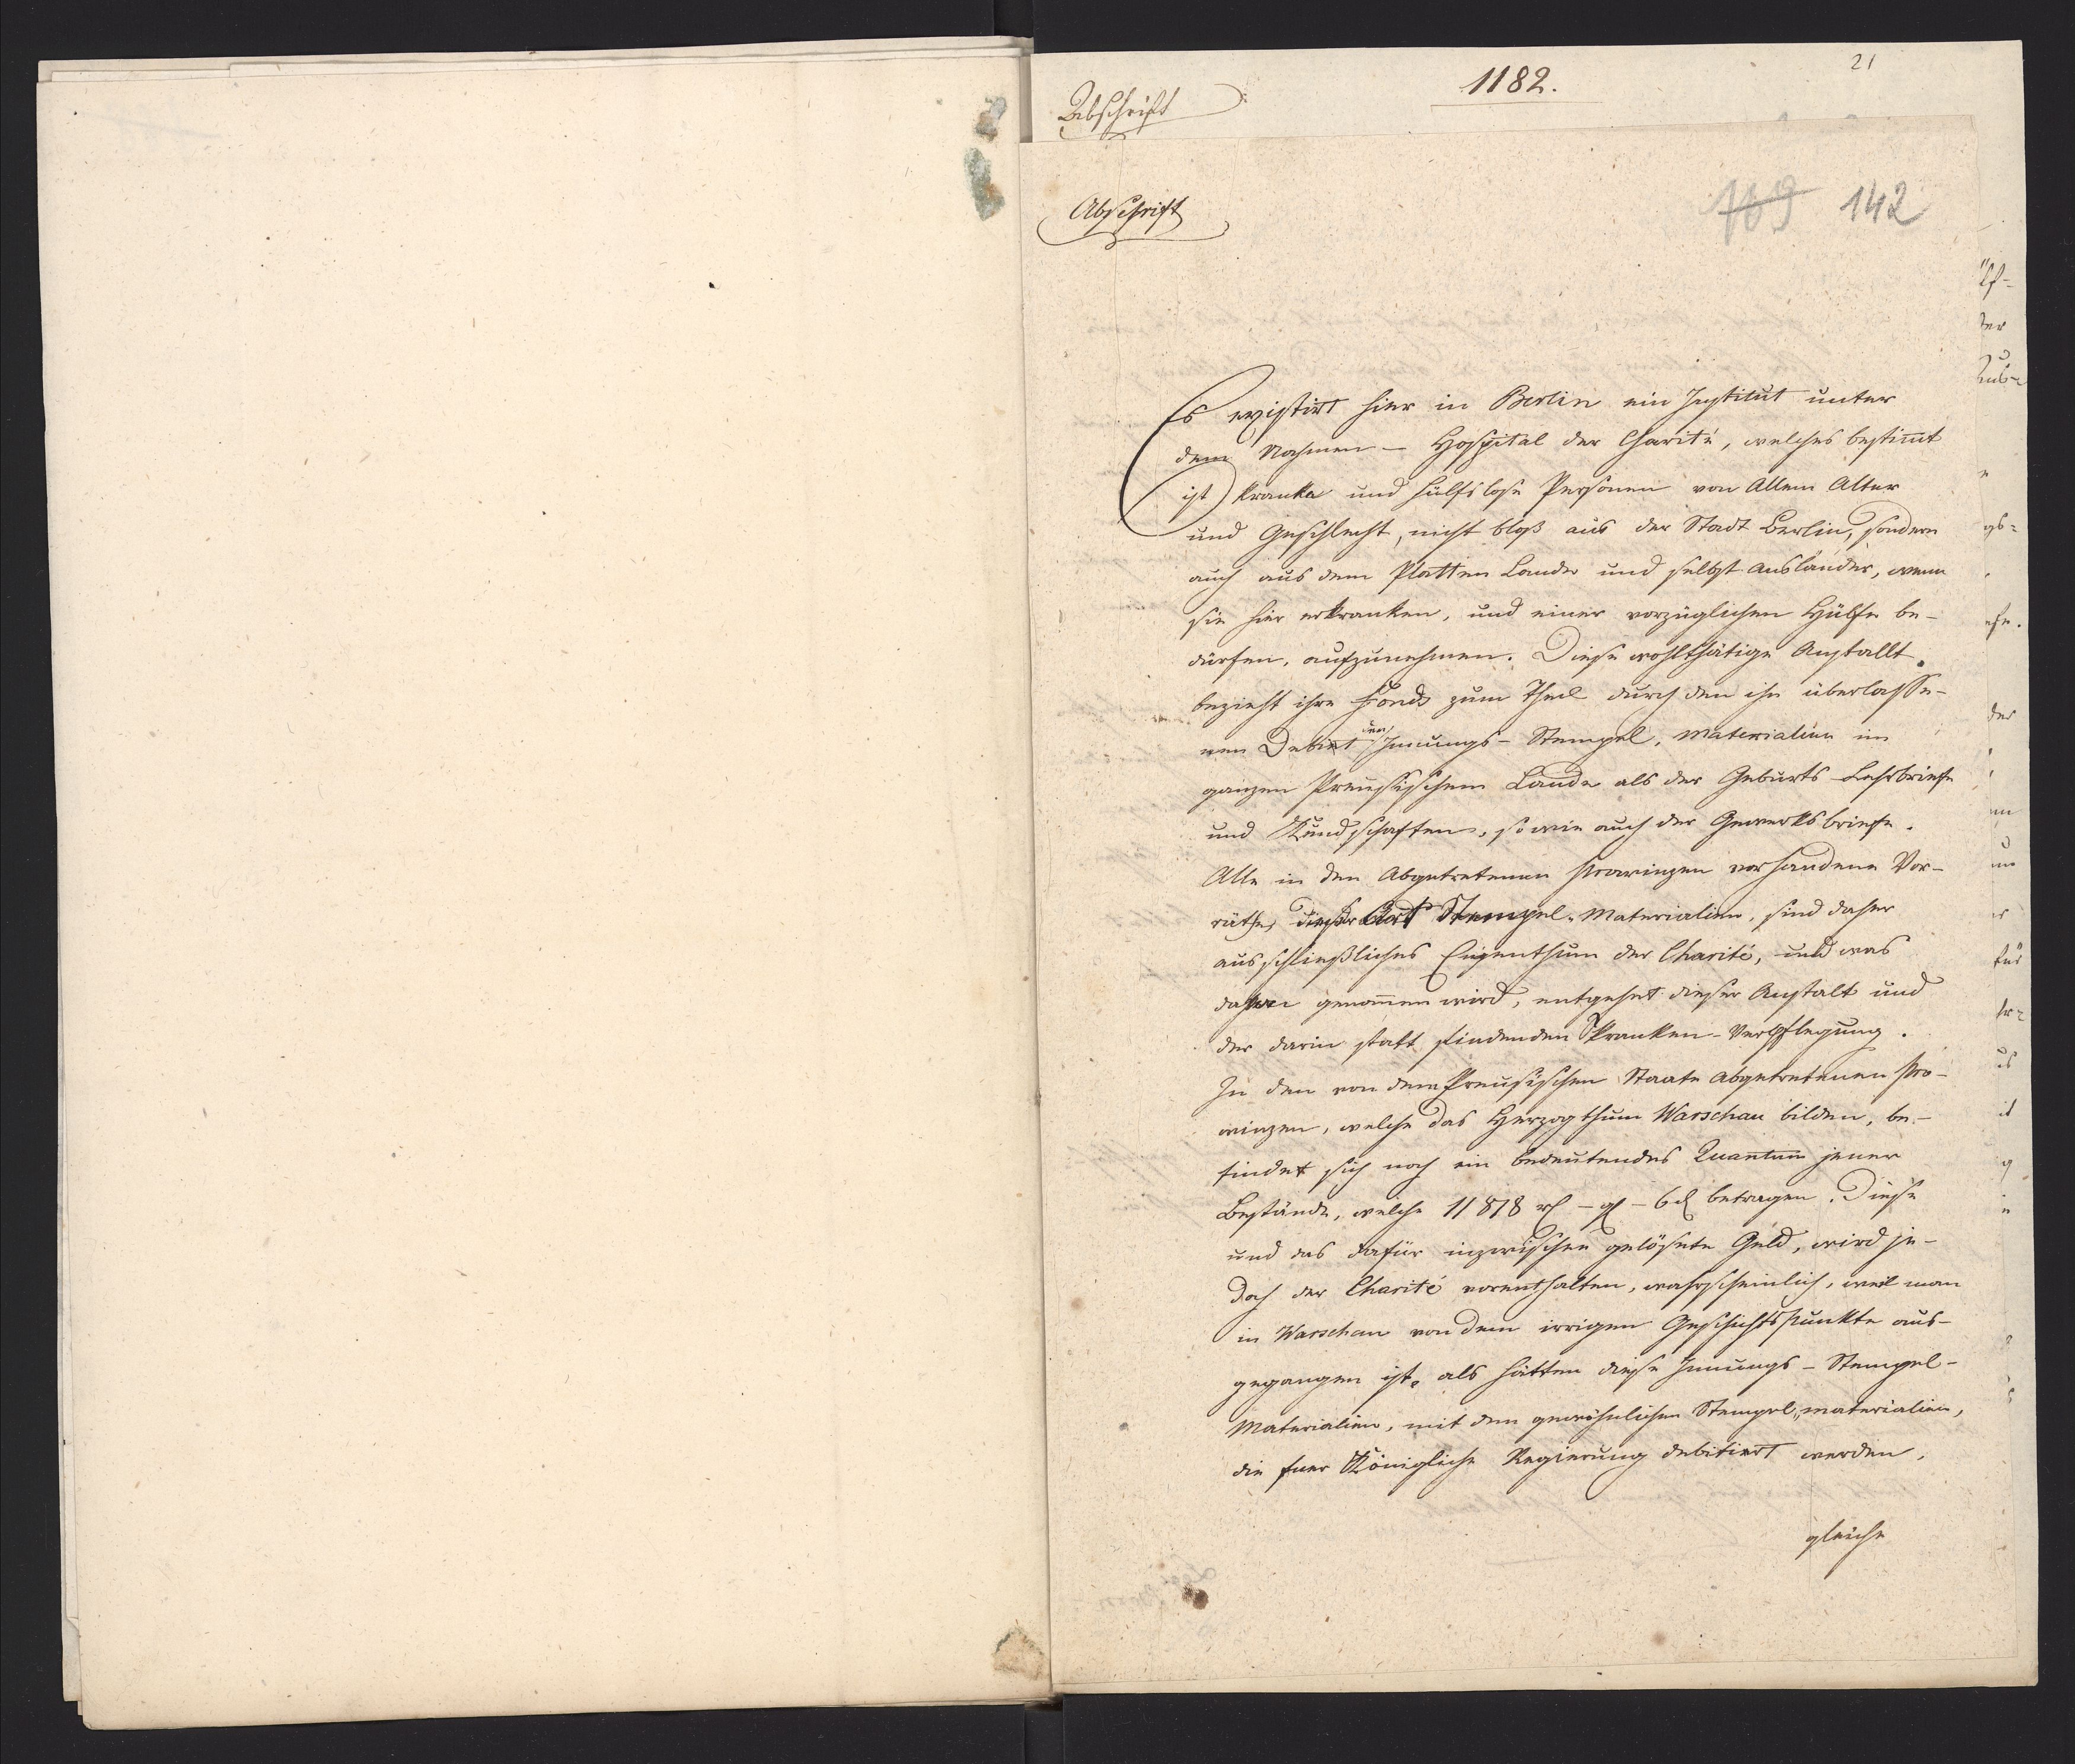 21
1182.
Abschrift
Abschrift
169 142
Es existirt hier in Berlin ein Institut unter
dem Nahmen – Hospital der Charité, welches bestim̄t
ist kranke und hülfslose Personen von Allem Alter
und Geschlecht, nicht bloß aus der Stadt Berlin, sondern
auch aus dem Platten Lande und selbst Ausländer, wenn
sie hier erkranken, und einer vorzüglichen Hülfe be-
dürfen, aufzunehmen. Diese wohlthätige Anstallt
bezieht ihre Fonds zum Theil durch den ihr überlasse-
nen Debit der Innungs-Stempel-Materialien im
ganzen Preussischem Lande als der Geburts Lehrbriefe
und Kundschaften, so wie auch der Gewerksbriefe.
Alle in den Abgetretenen Provinzen vorhandene Vor-
räthe, dieser Art Stempel-Materialien, sind daher
ausschließliches Eigenthum der Charité, und was
davon genom̄en wird, entgehet dieser Anstalt und
der darin statt findenden Kranken-Verpflegung.
In den von dem Preusischen Staate abgetretenen Pro-
vinzen, welche das Herzogthum Warschau bilden, be-
findet sich noch ein bedeutendes Quantum jener
Bestände, welche 11878 rl – gl – 6 d betragen. Diese
und das dafür inzwischen gelösete Geld, wird je-
doch der Charité vorenthalten, wahrscheinlich, weil man
in Warschau von dem irrigen Gesichtspunkte aus-
gegangen ist, als hätten diese Innungs-Stempel-
Materialien, mit den gewöhnlichen Stempel-materialien,
die fuer Königliche Regierung debitiert werden,
gleiche